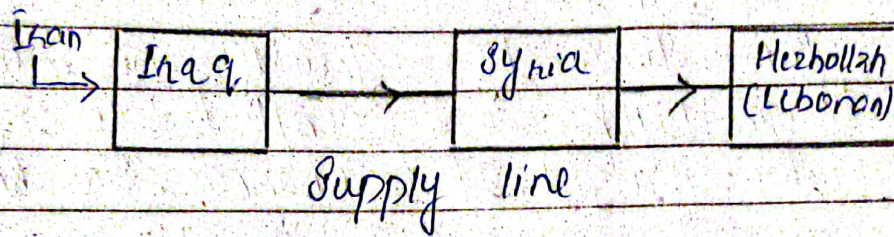 Iran
Iraq
Syria
Hezbollah
(Lebonon)
Supply line